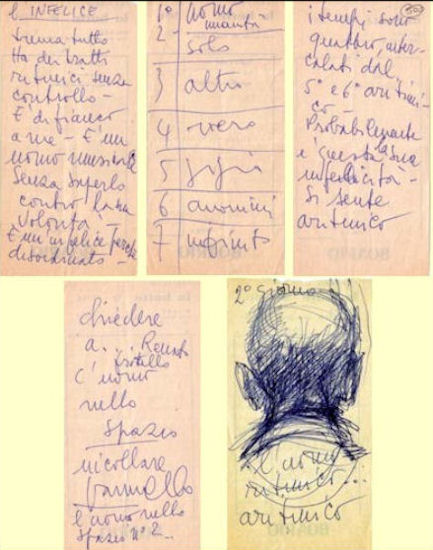 l'INFELICE
trema tutto
Ha dei tratti
ritmici senza
controllo -
È di fianco
a me - È un
uomo
Senza saperlo
contro la sua
volontà
È un infelice perché
disordinato -
1° uomo
umanità
2 - solo
3 altri
4 vero
5
6 anonimi
7 infinito
50
i tempi sono
quattro, inter-
calati dal
5° e 6° aritmi-
co -
Probabilmente
è questa la sua
infelicità -
Si sente
aritmico
chiedere
a... Renato
fratello
c'uomo
nello
spazio
incollare
l'uomo nello
spazio n° 2 -
2° giorno
l'uomo
ritmico...
aritmico